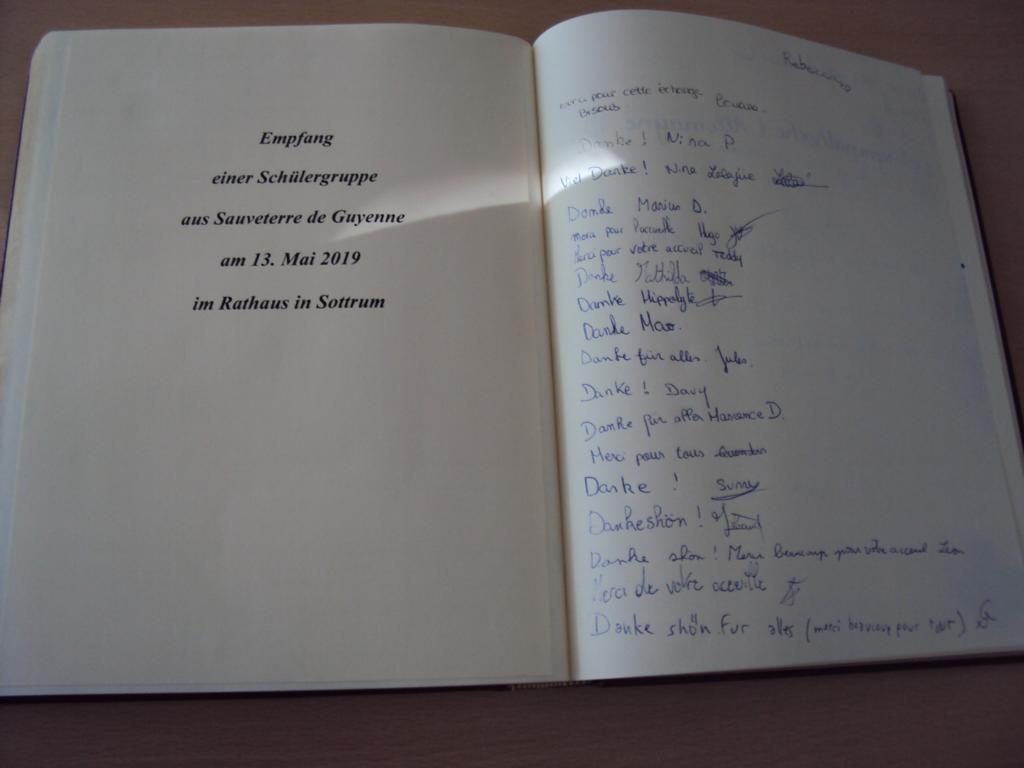 Empfang
einer Schülergruppe
aus Sauveterre de Guyenne
am 13. Mai 2019
im Rathaus in Sottrum
pour cette échange
Bisous
Danke! Nina P.
Viel Danke! Nina
Danke Marius D.
pour Hugo
Merci pour votre accueil Teddy
Danke Mathilda
Danke Hippolyte
Danke Max.
Danke für alles. Jules.
Danke! Davy
Danke für alles Maxance D.
Merci pour tous
Danke !
Dankeshön!
Danke shön! Merci beaucoup pour votre accueil Léon
Merci de votre
Danke shön Fur alles (merci beaucoup pour tout)